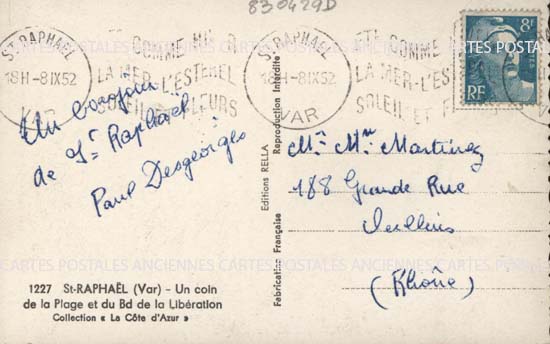 830429D
ST-RAPHAEL
18H-8 IX 52
VAR
ÉTÉ COMME HIVER
LA MER-L'ESTEREL
SOLEIL ET FLEURS
ST-RAPHAEL
18H-8 IX 52
VAR
ÉTÉ COMME
LA MER-L'ES
SOLEIL ET F
8F
RF
CARTES POSTALES ANCIENNES CARTES POSTALES ANCIENNES
Un bonjour
de St Raphael
Paul Desgeorges
Editions RELLA
Fabrication Française Reproduction Interdite
Mr Mme Martinez
188 Grande Rue
Oullins
(Rhône)
CARTES POSTALES ANCIENNES CARTES POSTALES ANCIENNES
1227 St-RAPHAËL (Var) - Un coin
de la Plage et du Bd de la Libération
Collection « La Côte d'Azur »